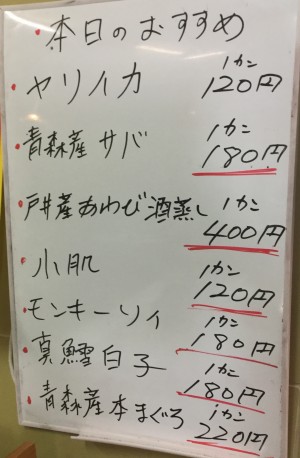 本日のおすすめ
ヤリイカ 1カン 120円
青森産サバ 1カン 180円
戸井産あわび酒蒸し 1カン 400円
小肌 1カン 120円
モンキーソイ 1カン 180円
真鱈白子 1カン 180円
青森産本まぐろ 1カン 220円